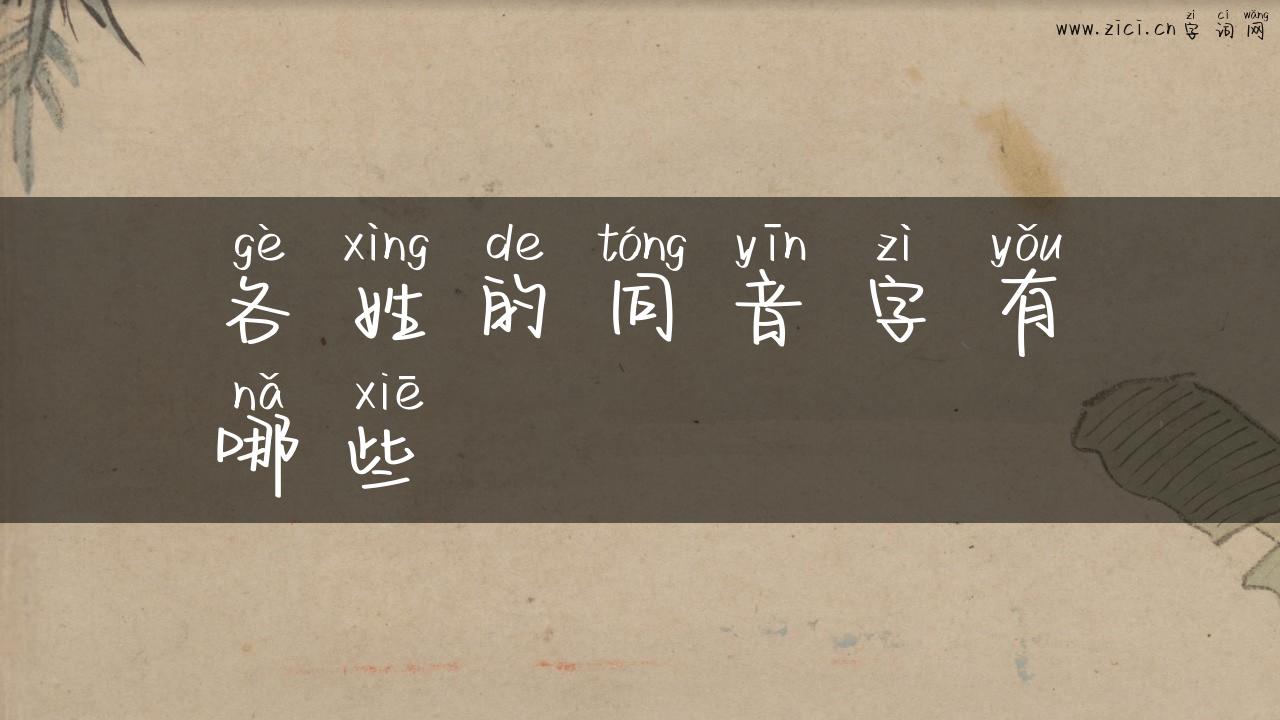 zì cí wǎng
www.zici.cn 字词网
gè xìng de tóng yīn zì yǒu
各姓的同音字有
nǎ xiē
哪些